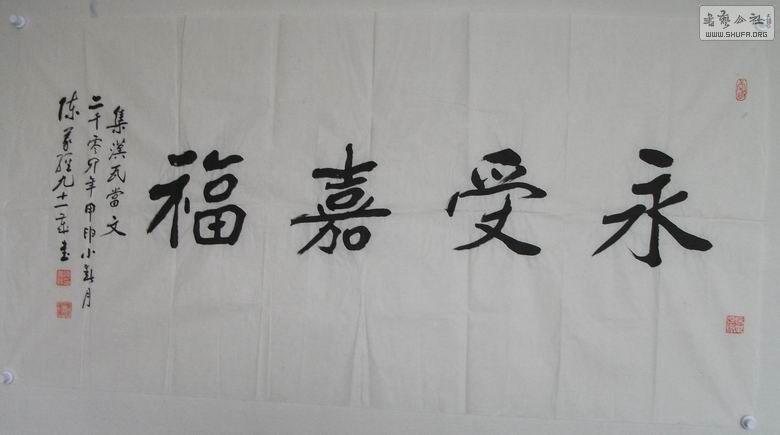 永受嘉福
集漢瓦當文
二千零四年甲申小月
陳九十一歲書
書藝公社
WWW.SHUFA.ORG